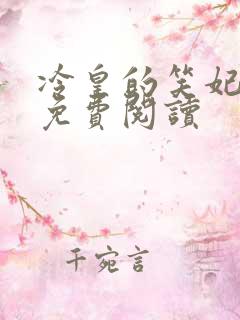 冷皇的笑妃
免費閱讀
千宛言